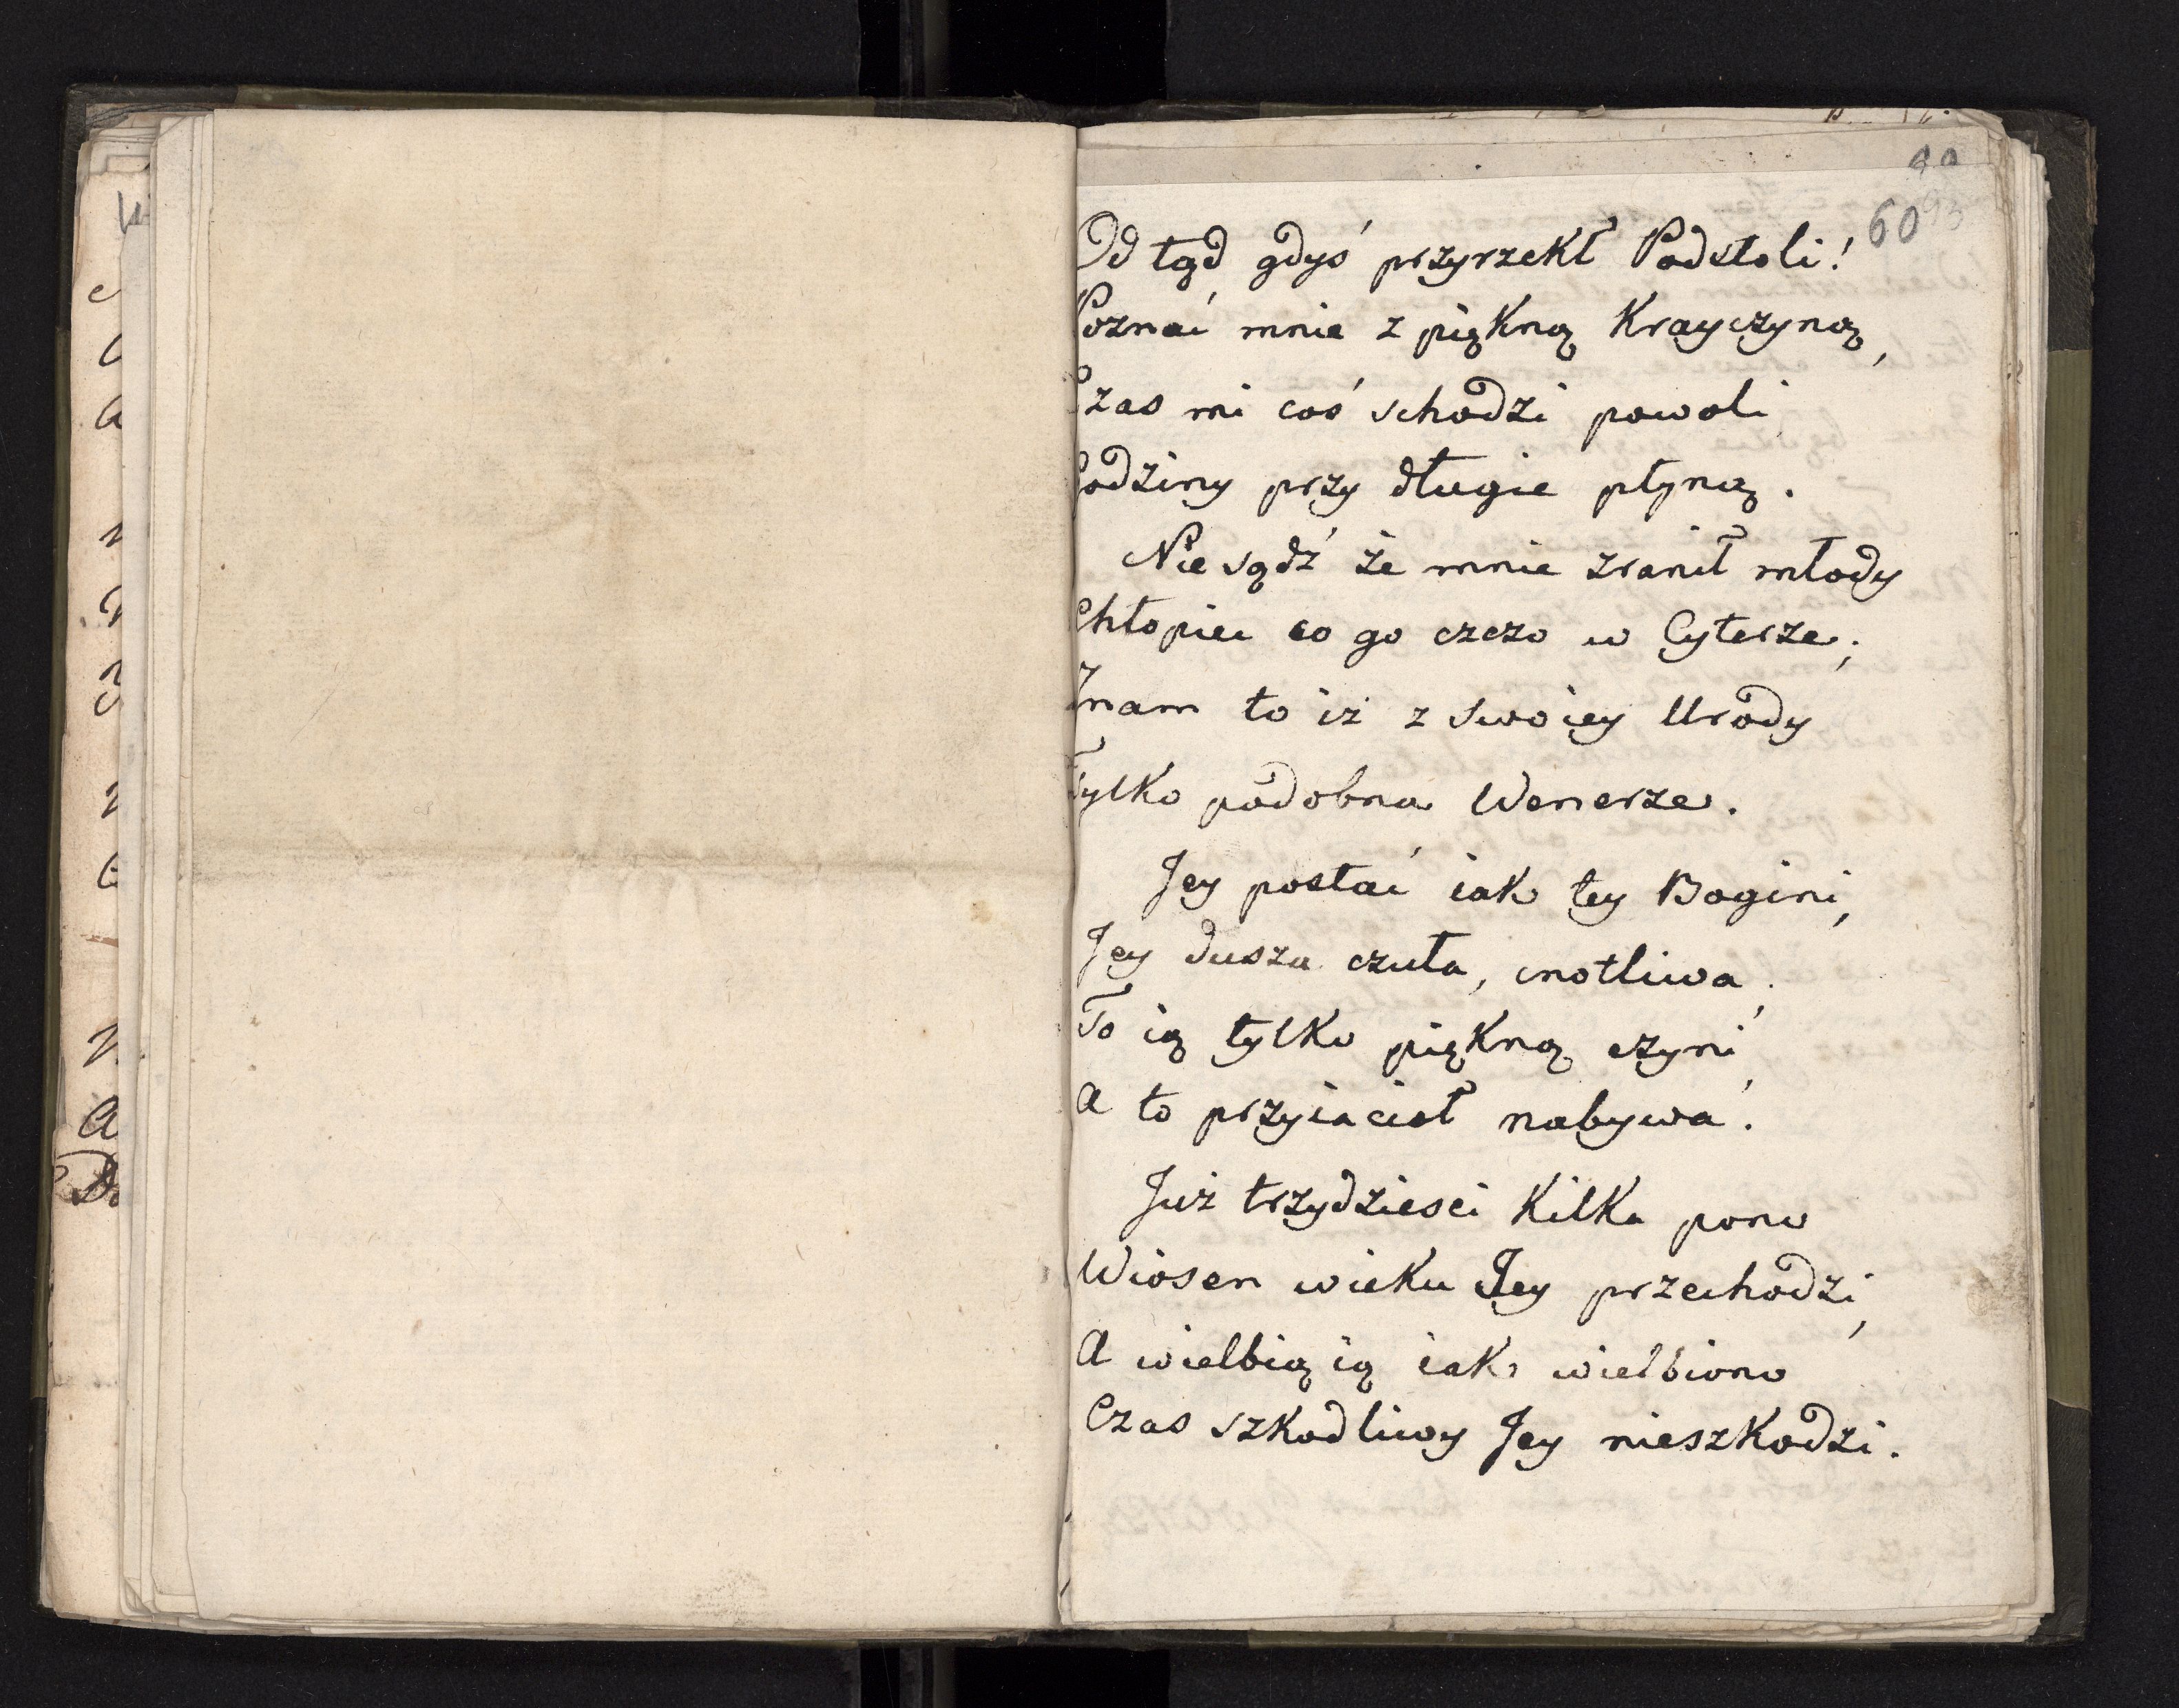 60 93
Od tąd gdyś przyrzekł Podstoli!
Poznać mnie z piękną Krayczyną,
Czas mi coś schodzi powoli
Godziny przy długie płyną.
Nie sądź że mnie zranił młody
Chłopiec co go czczo w Cyterze;
Znam to iż z swoiey Urody
Tylko podobna Wenerze.
Jey postać iak tey Bogini,
Jey dusza czuła, cnotliwa;
To ią tylko piękną czyni,
A to przyiaciół nabywa.
Już trzydziesci Kilka pono
Wiosen wieku Jey przechodzi,
A wielbią ią iak wielbiono
Czas szkodliwy Jey nieszkodzi.